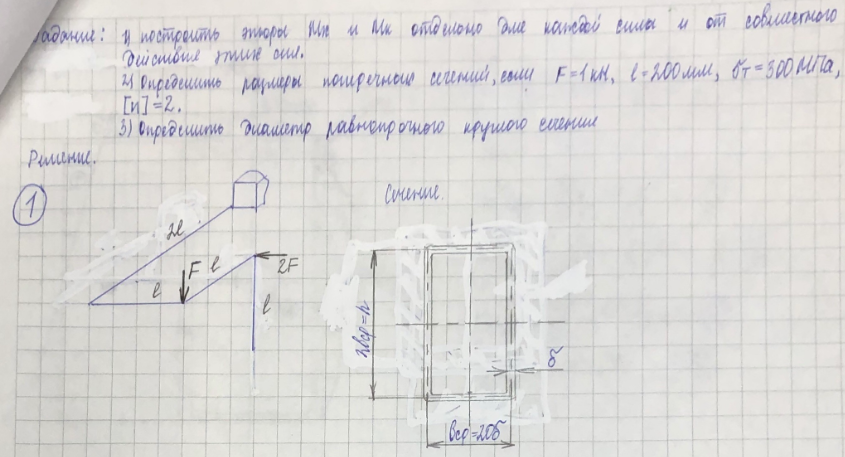 задание: 1) построить эпюры Mи и Mк отдельно для каждой силы и от совместного
действия этих сил.
2) Определить размеры поперечных сечений, если F=1кН, l=200мм, σт=300МПа,
[n]=2.
3) Определить диаметр равнопрочного круглого сечения
Решение.
1
Сечение.
2l
F
l
2F
l
l
2bср=h
δ
bср=20δ